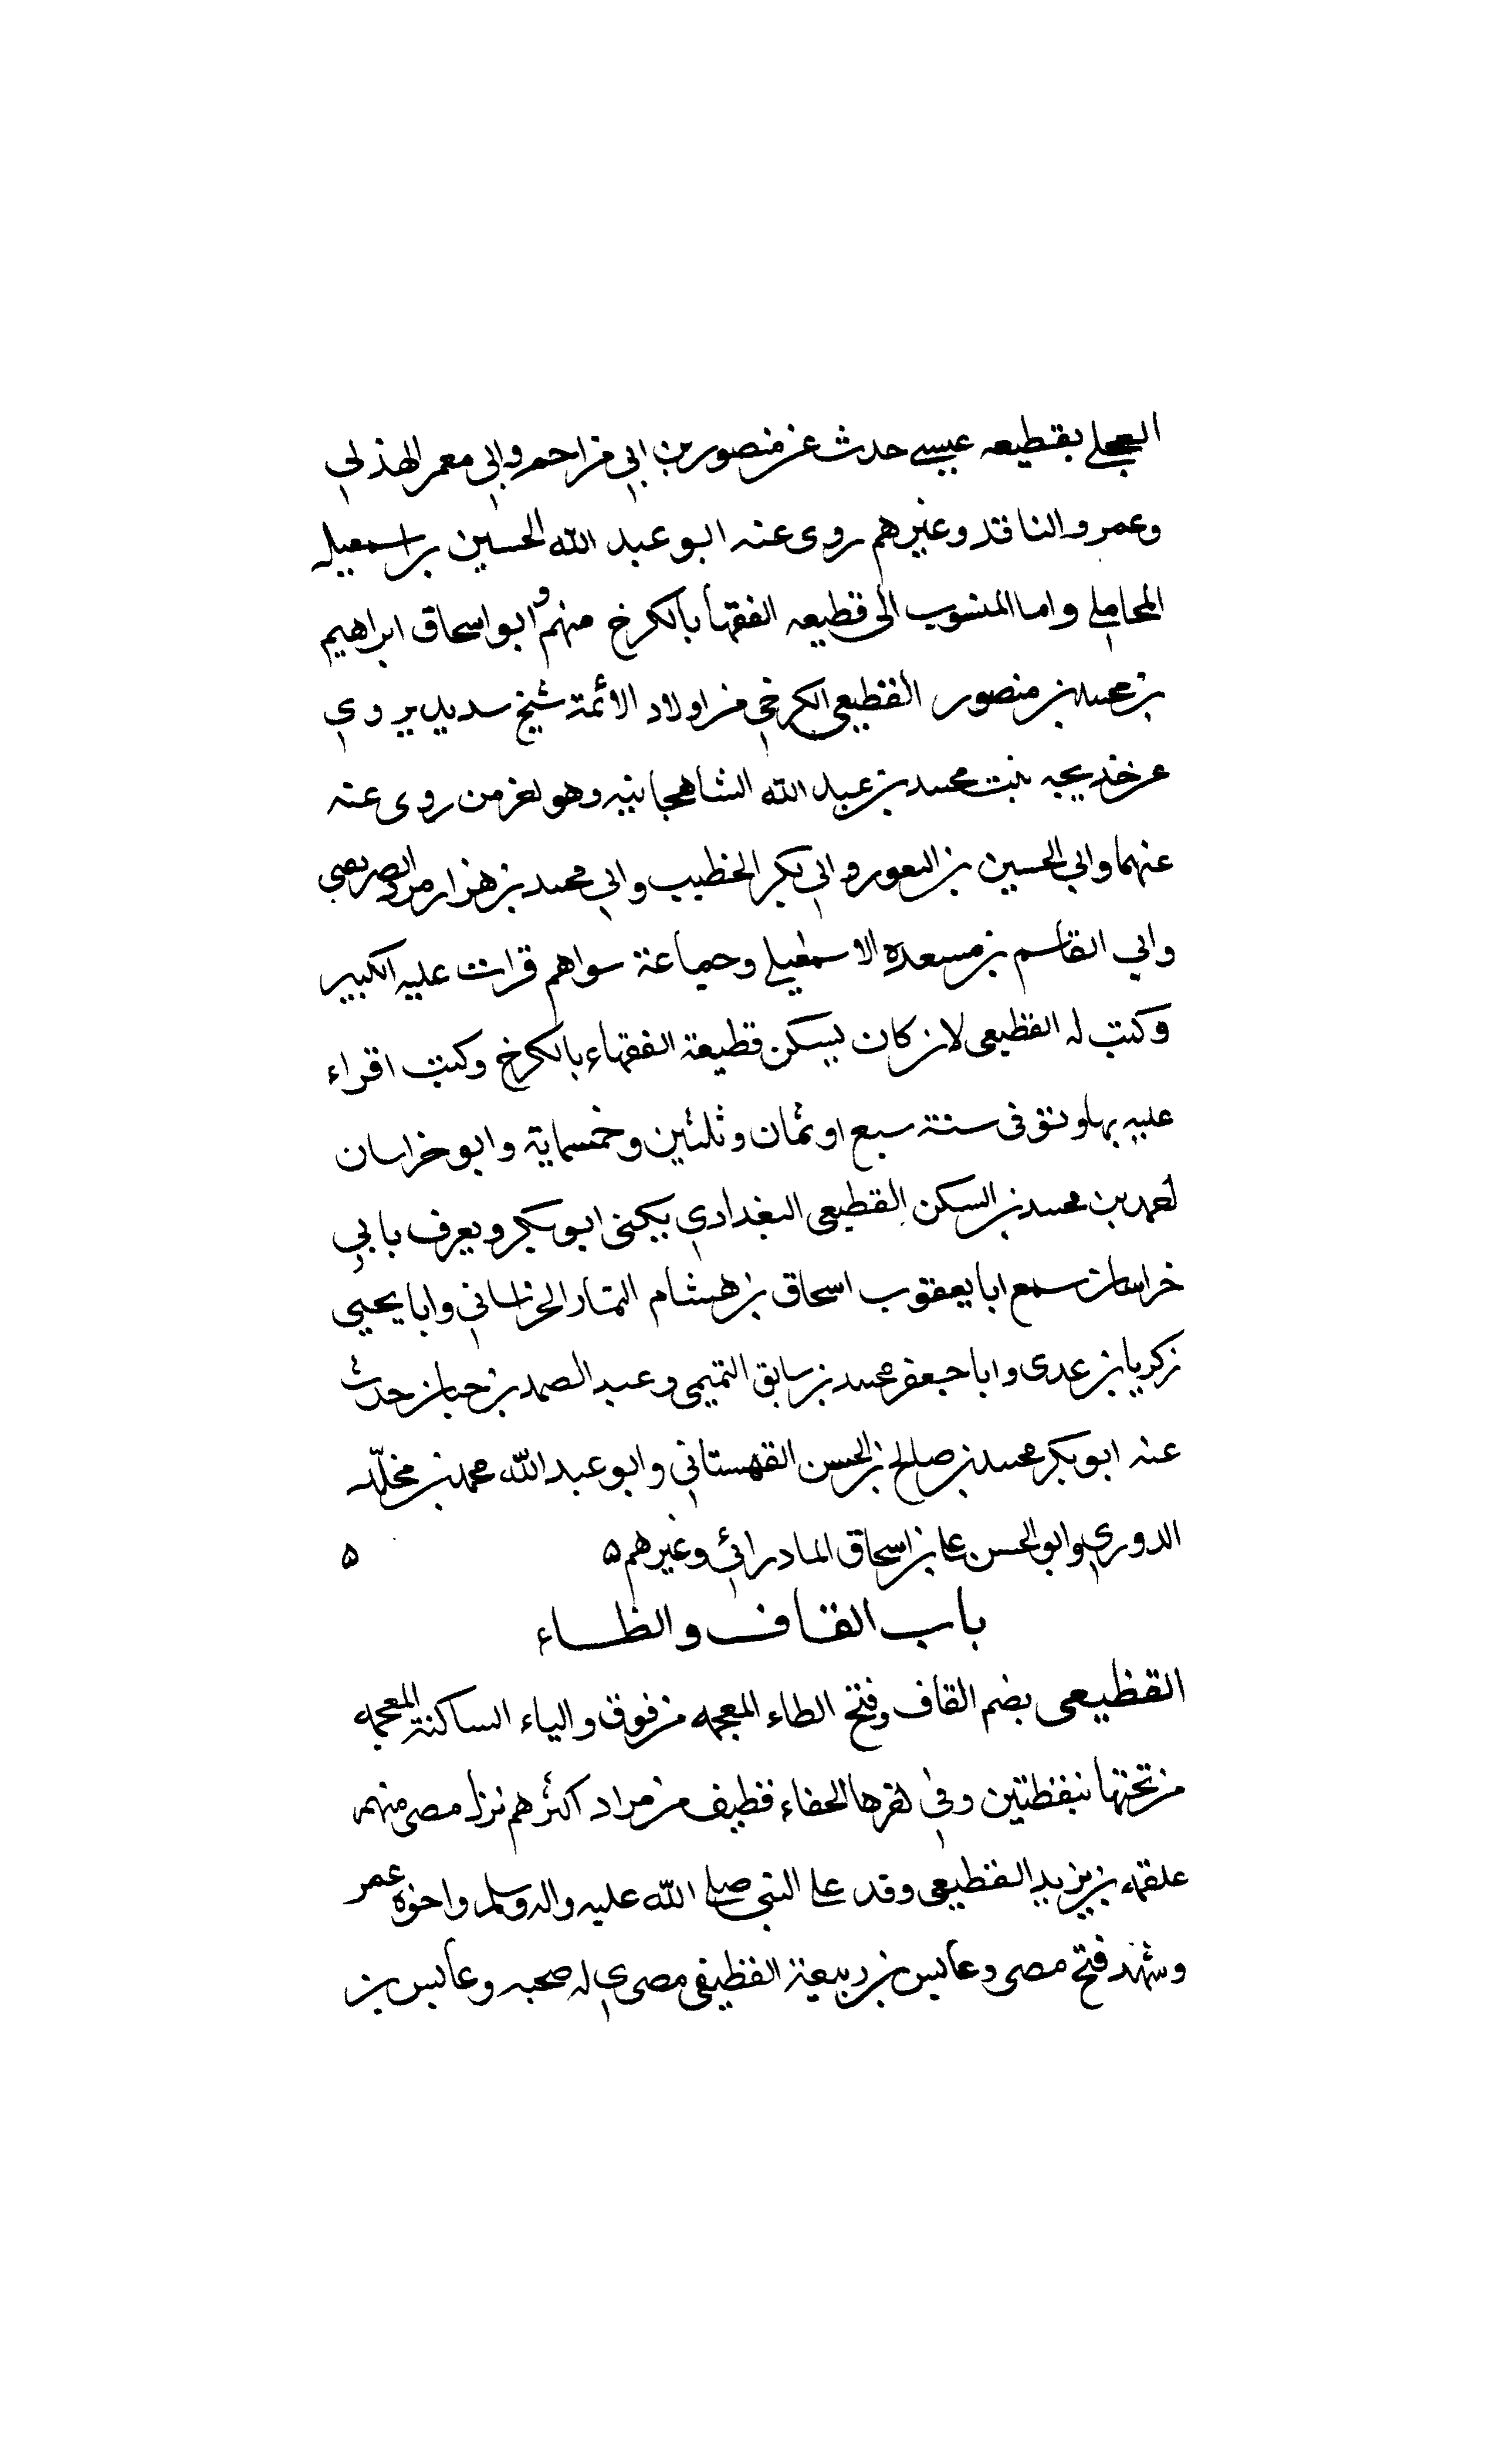 العجلي بقطيعه عيسى حدث عن منصور بن ابي مزاحم وابي معمر الهذلي
وعمرو الناقد وغيرهم روى عنه ابو عبد الله الحسين بن اسمعيل
المحاملي واما المنسوب الى قطيعه الفقها بالكرخ منهم وابو اسحاق ابراهيم
بن محمد بن منصور القطيعي الكرخي من اولاد الائمة شيخ سديد يروي
عن خديجه بنت محمد بن عبد الله الشاهجانيه وهو من روى عنه
عنهما وابي الحسين بن النعور وابي بكر الخطيب وابي محمد بن هزارمرد الصريفيني
وابي القاسم بن مسعده الاسمعيلي وجماعة سواهم قرات عليه الكبير
وكتب له القطيعي لان كان يسكن قطيعة الفقهاء بالكرخ وكنت اقراء
عليه بها وتوفى سنة سبع او ثمان وثلثين وخمسماية وابو خراسان
محمد بن محمد بن السكن القطيعي البغدادي يكنى ابو بكر ويعرف بابي
خراسان سمع ابا يعقوب اسحاق بن هشام التمار الخراساني وابا يحيى
زكريا بن عدى وابا جعفر محمد بن سابق التميمي وعبد الصمد بن حبان حدث
عنه ابو بكر محمد بن صالح بن الحسن القهستاني وابو عبد الله محمد بن مخلد
الدوري وابو الحسن علي بن اسحاق المادرائي وغيرهم ۵ ۵
باب القاف والظاء
القظيعى بضم القاف وفتح الطاء المعجمه من فوق والياء الساكنة المعجمه
من تحتها بنقطتين وفي اخرها الفاء قطيف من مراد اكثرهم نزل مصر منهم
علقمه بن يزيد القطيعى وفد على النبي صلى الله عليه واله وسلم واخوه عمر
وشهد فتح مصر وعابس بن ربيعة القظيفى مصري له صحبه وعابس بن